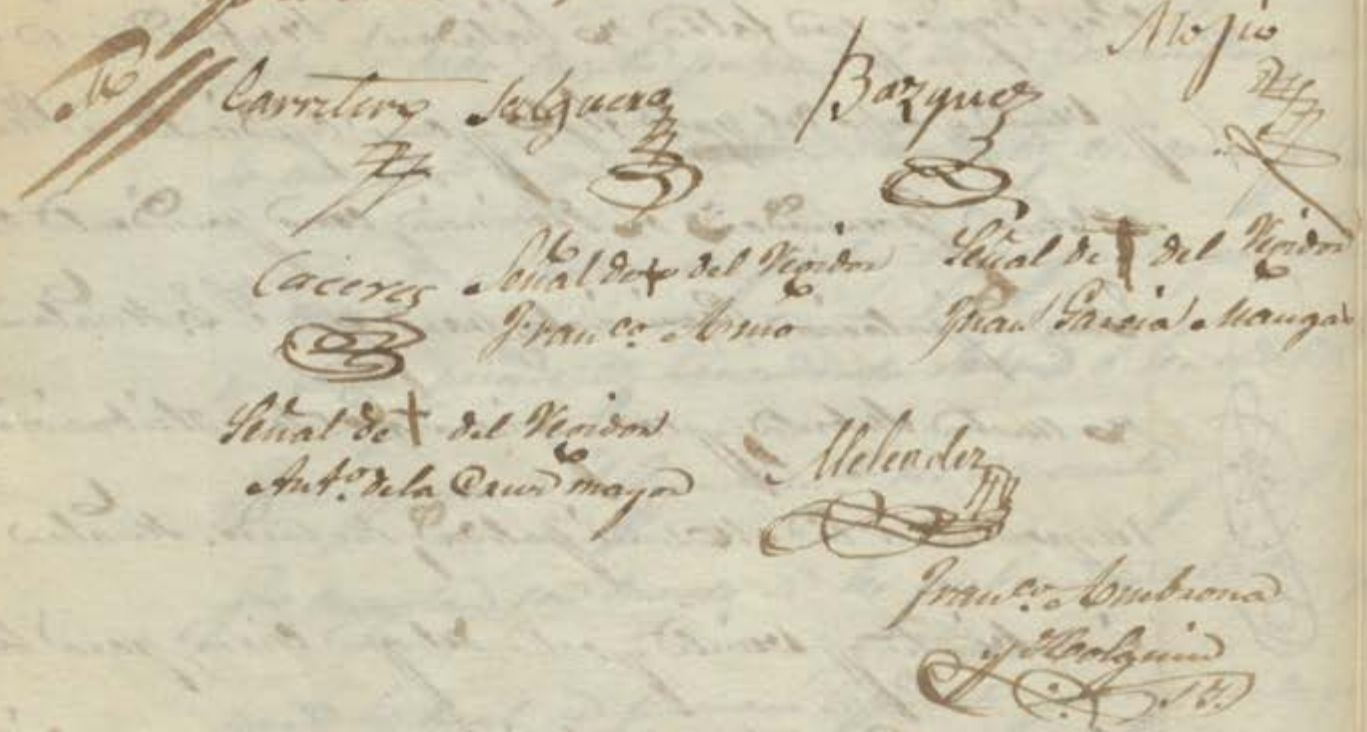 Mogio
Carretero Salguero Bazquez
Caceres Señal de + del Regidor Señal de + del Regidor
Franco. Juan Garcia Mangas
Señal de + del Regidor
Anto. de la Cruz mayor Melendez
Franco. Ambrona
y Holguin